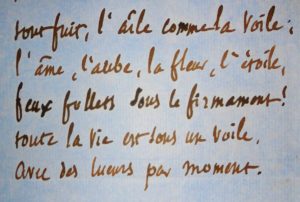 tout fuit, l'aile comme la voile ;
l'âme, l'aube, la fleur, l'étoile,
feux follets sous le firmament !
toute la vie est sous un voile,
avec des lueurs par moment.